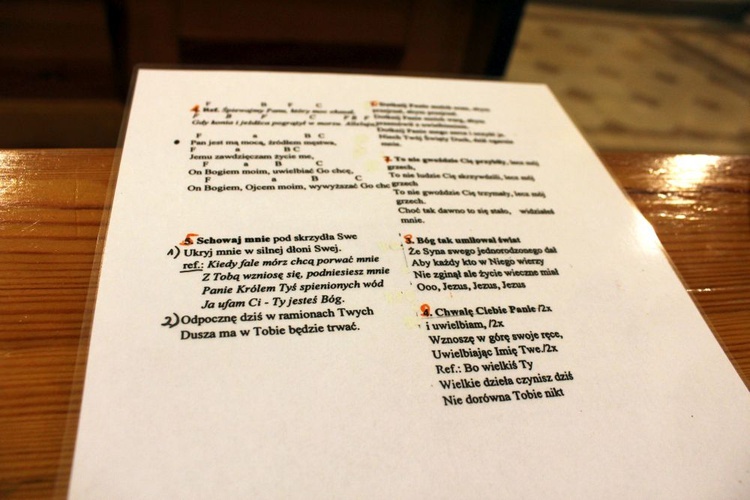 F B F C
4. Ref. Śpiewajmy Panu, który moc okazał,
F B F C F B F
Gdy konia i jeźdźca pogrążył w morzu. Alleluja
F a B C
• Pan jest mą mocą, źródłem męstwa,
F a B C
Jemu zawdzięczam życie me,
F a B C
On Bogiem moim, uwielbiać Go chcę,
F a B C
On Bogiem, Ojcem moim, wywyższać Go chcę
5. Schowaj mnie pod skrzydła Swe
1) Ukryj mnie w silnej dłoni Swej.
ref.: Kiedy fale mórz chcą porwać mnie
Z Tobą wzniosę się, podniesiesz mnie
Panie Królem Tyś spienionych wód
Ja ufam Ci - Ty jesteś Bóg.
2) Odpocznę dziś w ramionach Twych
Dusza ma w Tobie będzie trwać.
Dotknij Panie moich oczu, abym
przejrzał, abym przejrzał.
Dotknij Panie moich warg, abym
przemówił z uwielbieniem.
Dotknij Panie mego serca i oczyść je,
Niech Twój Święty Duch, dziś ogarnia
mnie.
2. To nie gwoździe Cię przybiły, lecz mój
grzech,
To nie ludzie Cię skrzywdzili, lecz mój
grzech
To nie gwoździe Cię trzymały, lecz mój
grzech.
Choć tak dawno to się stało, widziałeś
mnie.
3. Bóg tak umiłował świat
Że Syna swego jednorodzonego dał
Aby każdy kto w Niego wierzy
Nie zginął ale życie wieczne miał
Ooo, Jezus, Jezus, Jezus
4. Chwalę Ciebie Panie /2x
i uwielbiam, /2x
Wznoszę w górę swoje ręce,
Uwielbiając Imię Twe./2x
Ref.: Bo wielkiś Ty
Wielkie dzieła czynisz dziś
Nie dorówna Tobie nikt